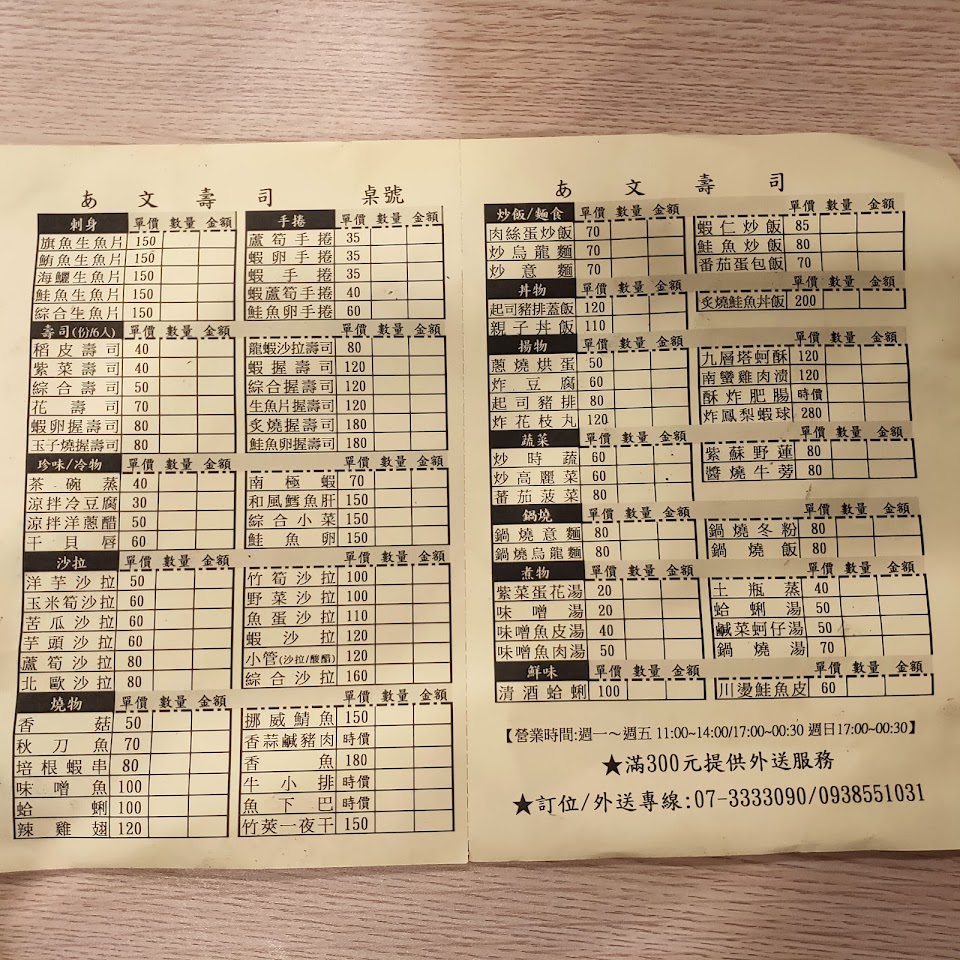 あ文壽司 桌號
刺身 單價 數量 金額
旗魚生魚片 150
鮪魚生魚片 150
海鱺生魚片 150
鮭魚生魚片 150
綜合生魚片 150
手捲 單價 數量 金額
蘆筍手捲 35
蝦卵手捲 35
蝦手捲 35
蝦蘆筍手捲 40
鮭魚卵手捲 60
壽司(份/6人) 單價 數量 金額
稻皮壽司 40
紫菜壽司 40
綜合壽司 50
花壽司 70
蝦卵握壽司 80
玉子燒握壽司 80
單價 數量 金額
龍蝦沙拉壽司 80
蝦握壽司 120
綜合握壽司 120
生魚片握壽司 120
炙燒握壽司 180
鮭魚卵握壽司 180
珍味/冷物 單價 數量 金額
茶碗蒸 40
涼拌冷豆腐 30
涼拌洋蔥醋 50
干貝唇 60
單價 數量 金額
南極蝦 70
和風鱈魚肝 150
綜合小菜 150
鮭魚卵 150
沙拉 單價 數量 金額
洋芋沙拉 50
玉米筍沙拉 60
苦瓜沙拉 60
芋頭沙拉 60
蘆筍沙拉 80
北歐沙拉 80
單價 數量 金額
竹筍沙拉 100
野菜沙拉 100
魚蛋沙拉 110
蝦沙拉 120
小管(沙拉/酸醋) 120
綜合沙拉 160
燒物 單價 數量 金額
香菇 50
秋刀魚 70
培根蝦串 80
味噌魚 100
蛤蜊 100
辣雞翅 120
單價 數量 金額
挪威鯖魚 150
香蒜鹹豬肉 時價
香魚 180
牛小排 時價
魚下巴 時價
竹莢一夜干 150
あ文壽司
炒飯/麵食 單價 數量 金額
肉絲蛋炒飯 70
炒烏龍麵 70
炒意麵 70
單價 數量 金額
蝦仁炒飯 85
鮭魚炒飯 80
番茄蛋包飯 70
丼物 單價 數量 金額
起司豬排蓋飯 120
親子丼飯 110
單價 數量 金額
炙燒鮭魚丼飯 200
揚物 單價 數量 金額
蔥燒烘蛋 50
炸豆腐 60
起司豬排 80
炸花枝丸 120
單價 數量 金額
九層塔蚵酥 120
南蠻雞肉漬 120
酥炸肥腸 時價
炸鳳梨蝦球 280
蔬菜 單價 數量 金額
炒時蔬 60
炒高麗菜 60
蕃茄菠菜 80
單價 數量 金額
紫蘇野蓮 80
醬燒牛蒡 80
鍋燒 單價 數量 金額
鍋燒意麵 80
鍋燒烏龍麵 80
單價 數量 金額
鍋燒冬粉 80
鍋燒飯 80
煮物 單價 數量 金額
紫菜蛋花湯 20
味噌湯 20
味噌魚皮湯 40
味噌魚肉湯 50
單價 數量 金額
土瓶蒸 40
蛤蜊湯 50
鹹菜蚵仔湯 50
鍋燒湯 50
鮮味 單價 數量 金額
清酒蛤蜊 100
單價 數量 金額
川燙鮭魚皮 60
【營業時間:週一～週五 11:00~14:00/17:00~00:30 週日17:00~00:30】
★滿300元提供外送服務
★訂位/外送專線:07-3333090/0938551031